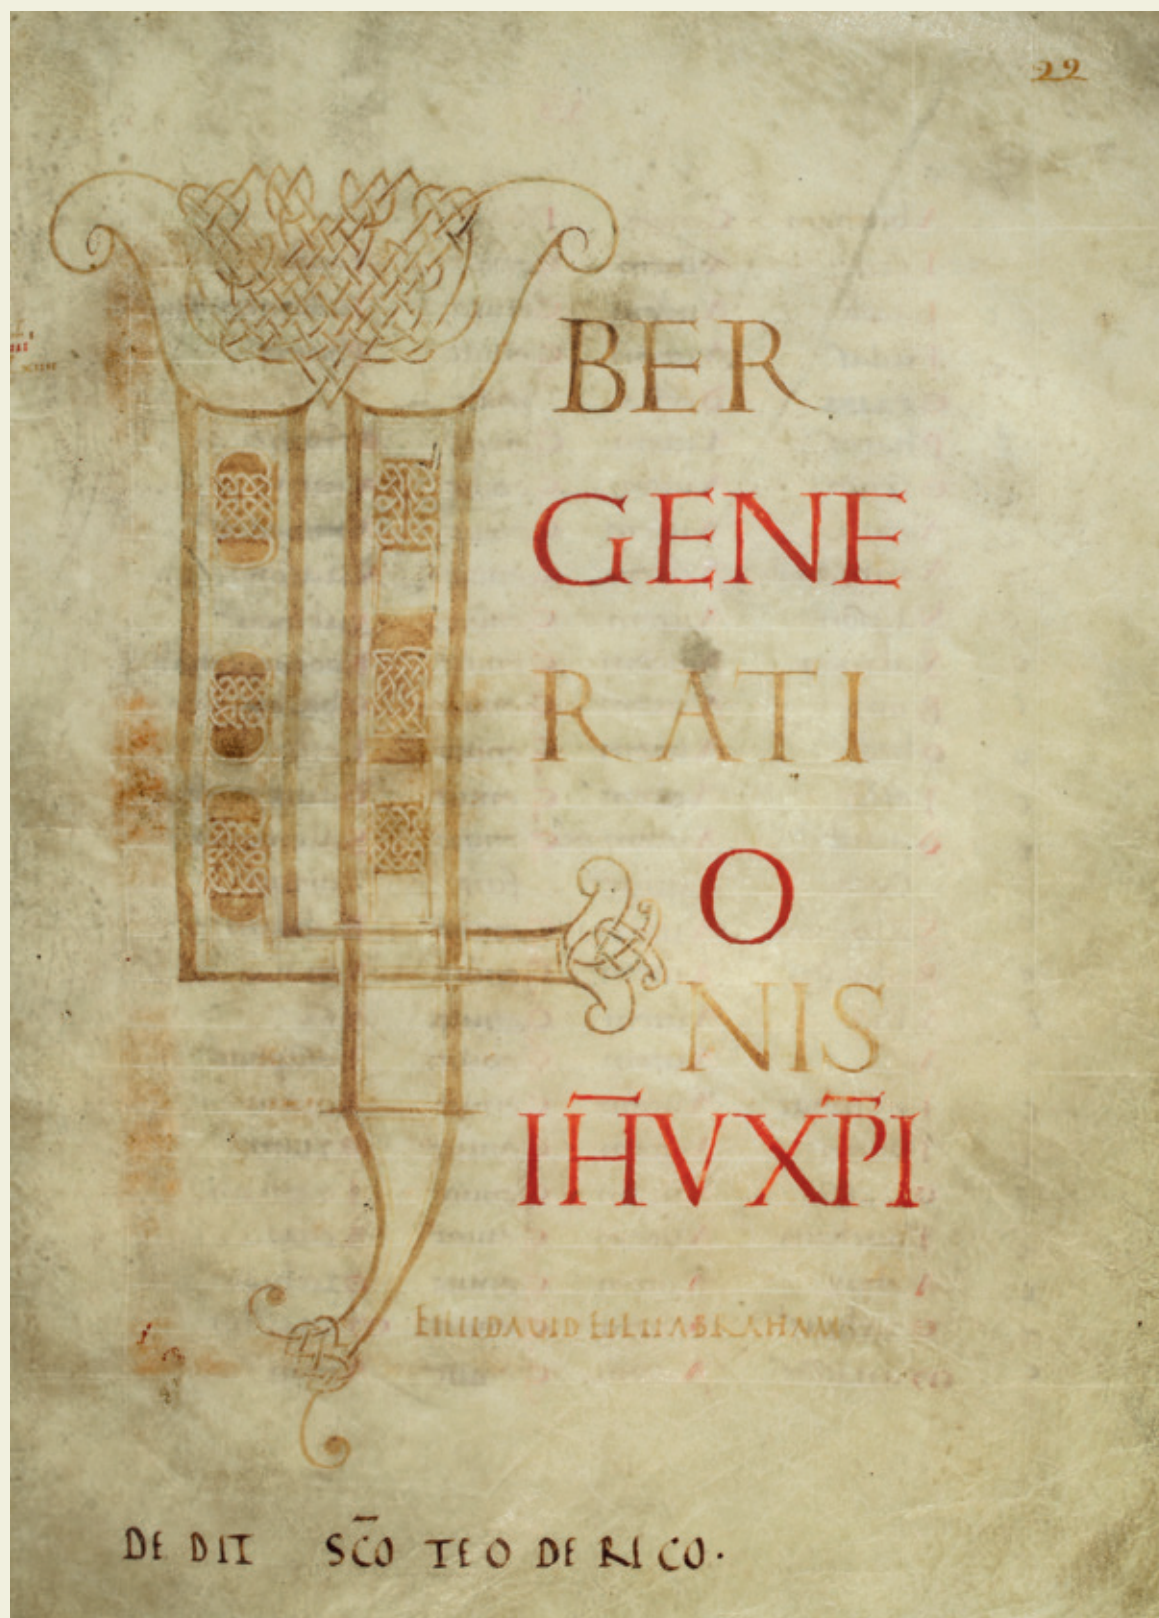 29
LIBER
GENE
RATI
O
NIS
IH̅V XP̅I
FILII DAVID FILII ABRAHAM
DE DIT SC̅O TEO DE RI CO.